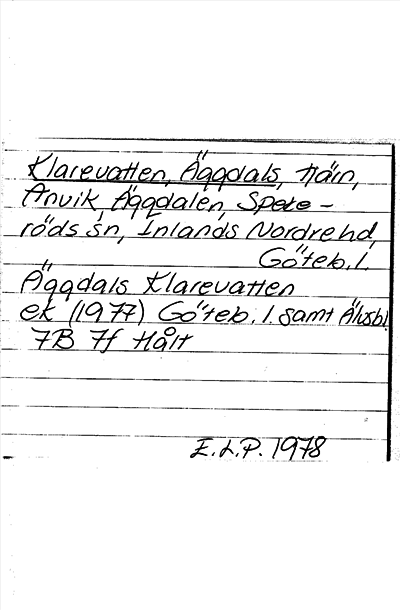 Klarevatten, Äggdals, tjärn,
Anvik, Äggdalen, Speke-
röds sn, Inlands Nordre hd,
Göteb. l.
Äggdals Klarevatten
ek (1977) Göteb. l. samt Älvsbl.
7B 7f Hålt
E.L.P. 1978